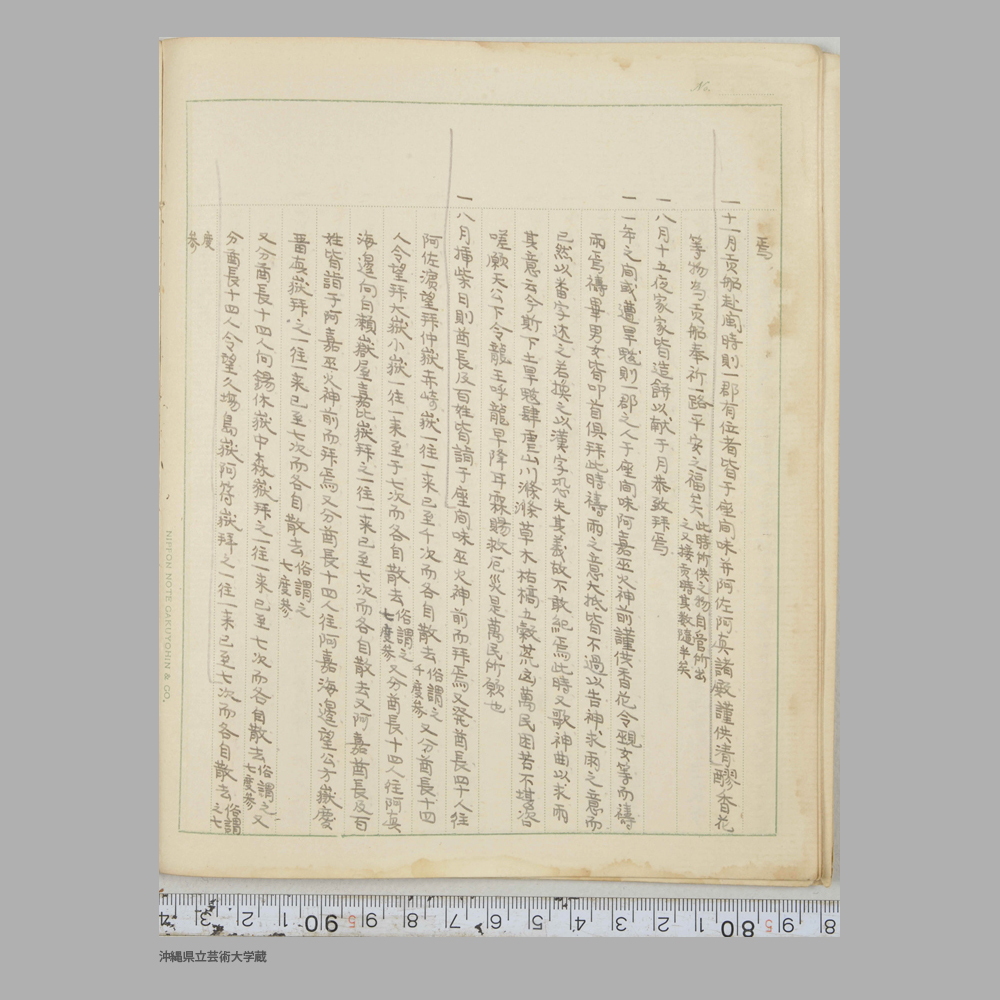 No.
焉
一十一月貢船赴閩時則一郡有位者皆于座間味并阿佐阿真諸殿謹供清醪香花
等物為貢船奉祈一路平安之福焉 此時所供之物自官所出
之又接貢時其数隨半矣
一八月十五夜家家皆造餅以献于月恭致拜焉
一一年之間或遭旱魃則一郡之人于座間味阿嘉巫火神前謹供香花令覡女等而禱
雨焉禱畢男女皆叩首俱拜此時禱雨之意大抵皆不過以告神求雨之意而
已然以番字述之若換之以漢字恐失其義故不敢紀焉此時又歌神曲以求雨
其意云今斯下土旱魃肆虐山川滌滌草木枯槁五穀其凶萬民困苦不堪咨
嗟願天公下令龍王呼龍早降甘霖賜救厄災是萬民所願也
一八月揷柴日則酋長及百姓皆詣于座間味巫火神前而拜焉又発酋長四十人往
阿佐濱望拜仲嶽赤崎嶽一往一来已至千次而各自散去 俗謂之
千度参 又分酋長十四
人令望拜大嶽小嶽一往一来至于七次而各自散去 俗謂之
七度参 又分酋長十四人往阿真
海邊向白賴嶽屋嘉比嶽拜之一往一来已至七次而各自散去又阿嘉酋長及百
姓皆詣于阿嘉巫火神前而拜焉又分酋長十四人往阿嘉海邊望公方嶽慶
番真嶽拜之一往一来已至七次而各自散去 俗謂之
七度参
又分酋長十四人向錫休嶽中森嶽拜之一往一来已至七次而各自散去 俗謂之
七度参 又
分酋長十四人令望久場島嶽阿符嶽拜之一往一来已至七次而各自散去 俗謂
之七
度
参
NIPPON NOTE GAKUYOHIN & CO.
4 3 2 1 90 9 8 7 6 5 4 3 2 1 80 9 8
沖縄県立芸術大学蔵